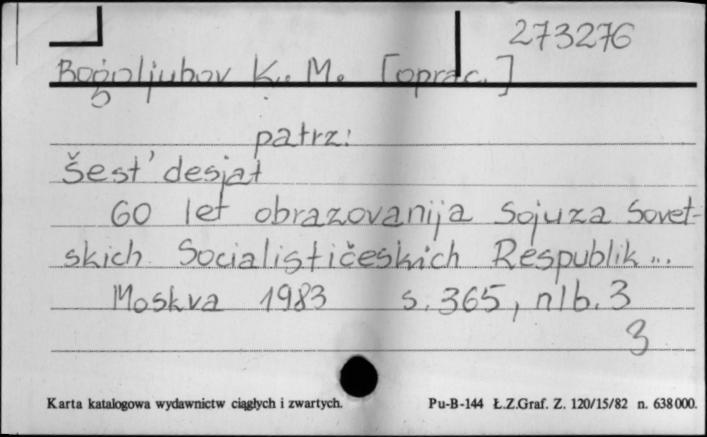 273276
Bogoljubov K. M. [oprac.]
patrz:
Šest'desjat
60 let obrazovanija Sojuza Sovet-
skich Socialističeskich Respublik...
Moskva 1983 s. 365, nlb. 3
3
Karta katalogowa wydawnictw ciągłych i zwartych. Pu-B-144 Ł.Z.Graf. Z. 120/15/82 n. 638000.